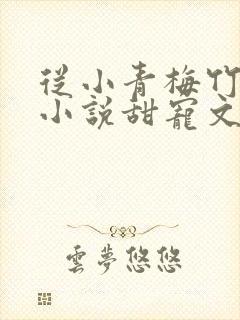 從小青梅竹
小說甜寵文
雲夢悠悠